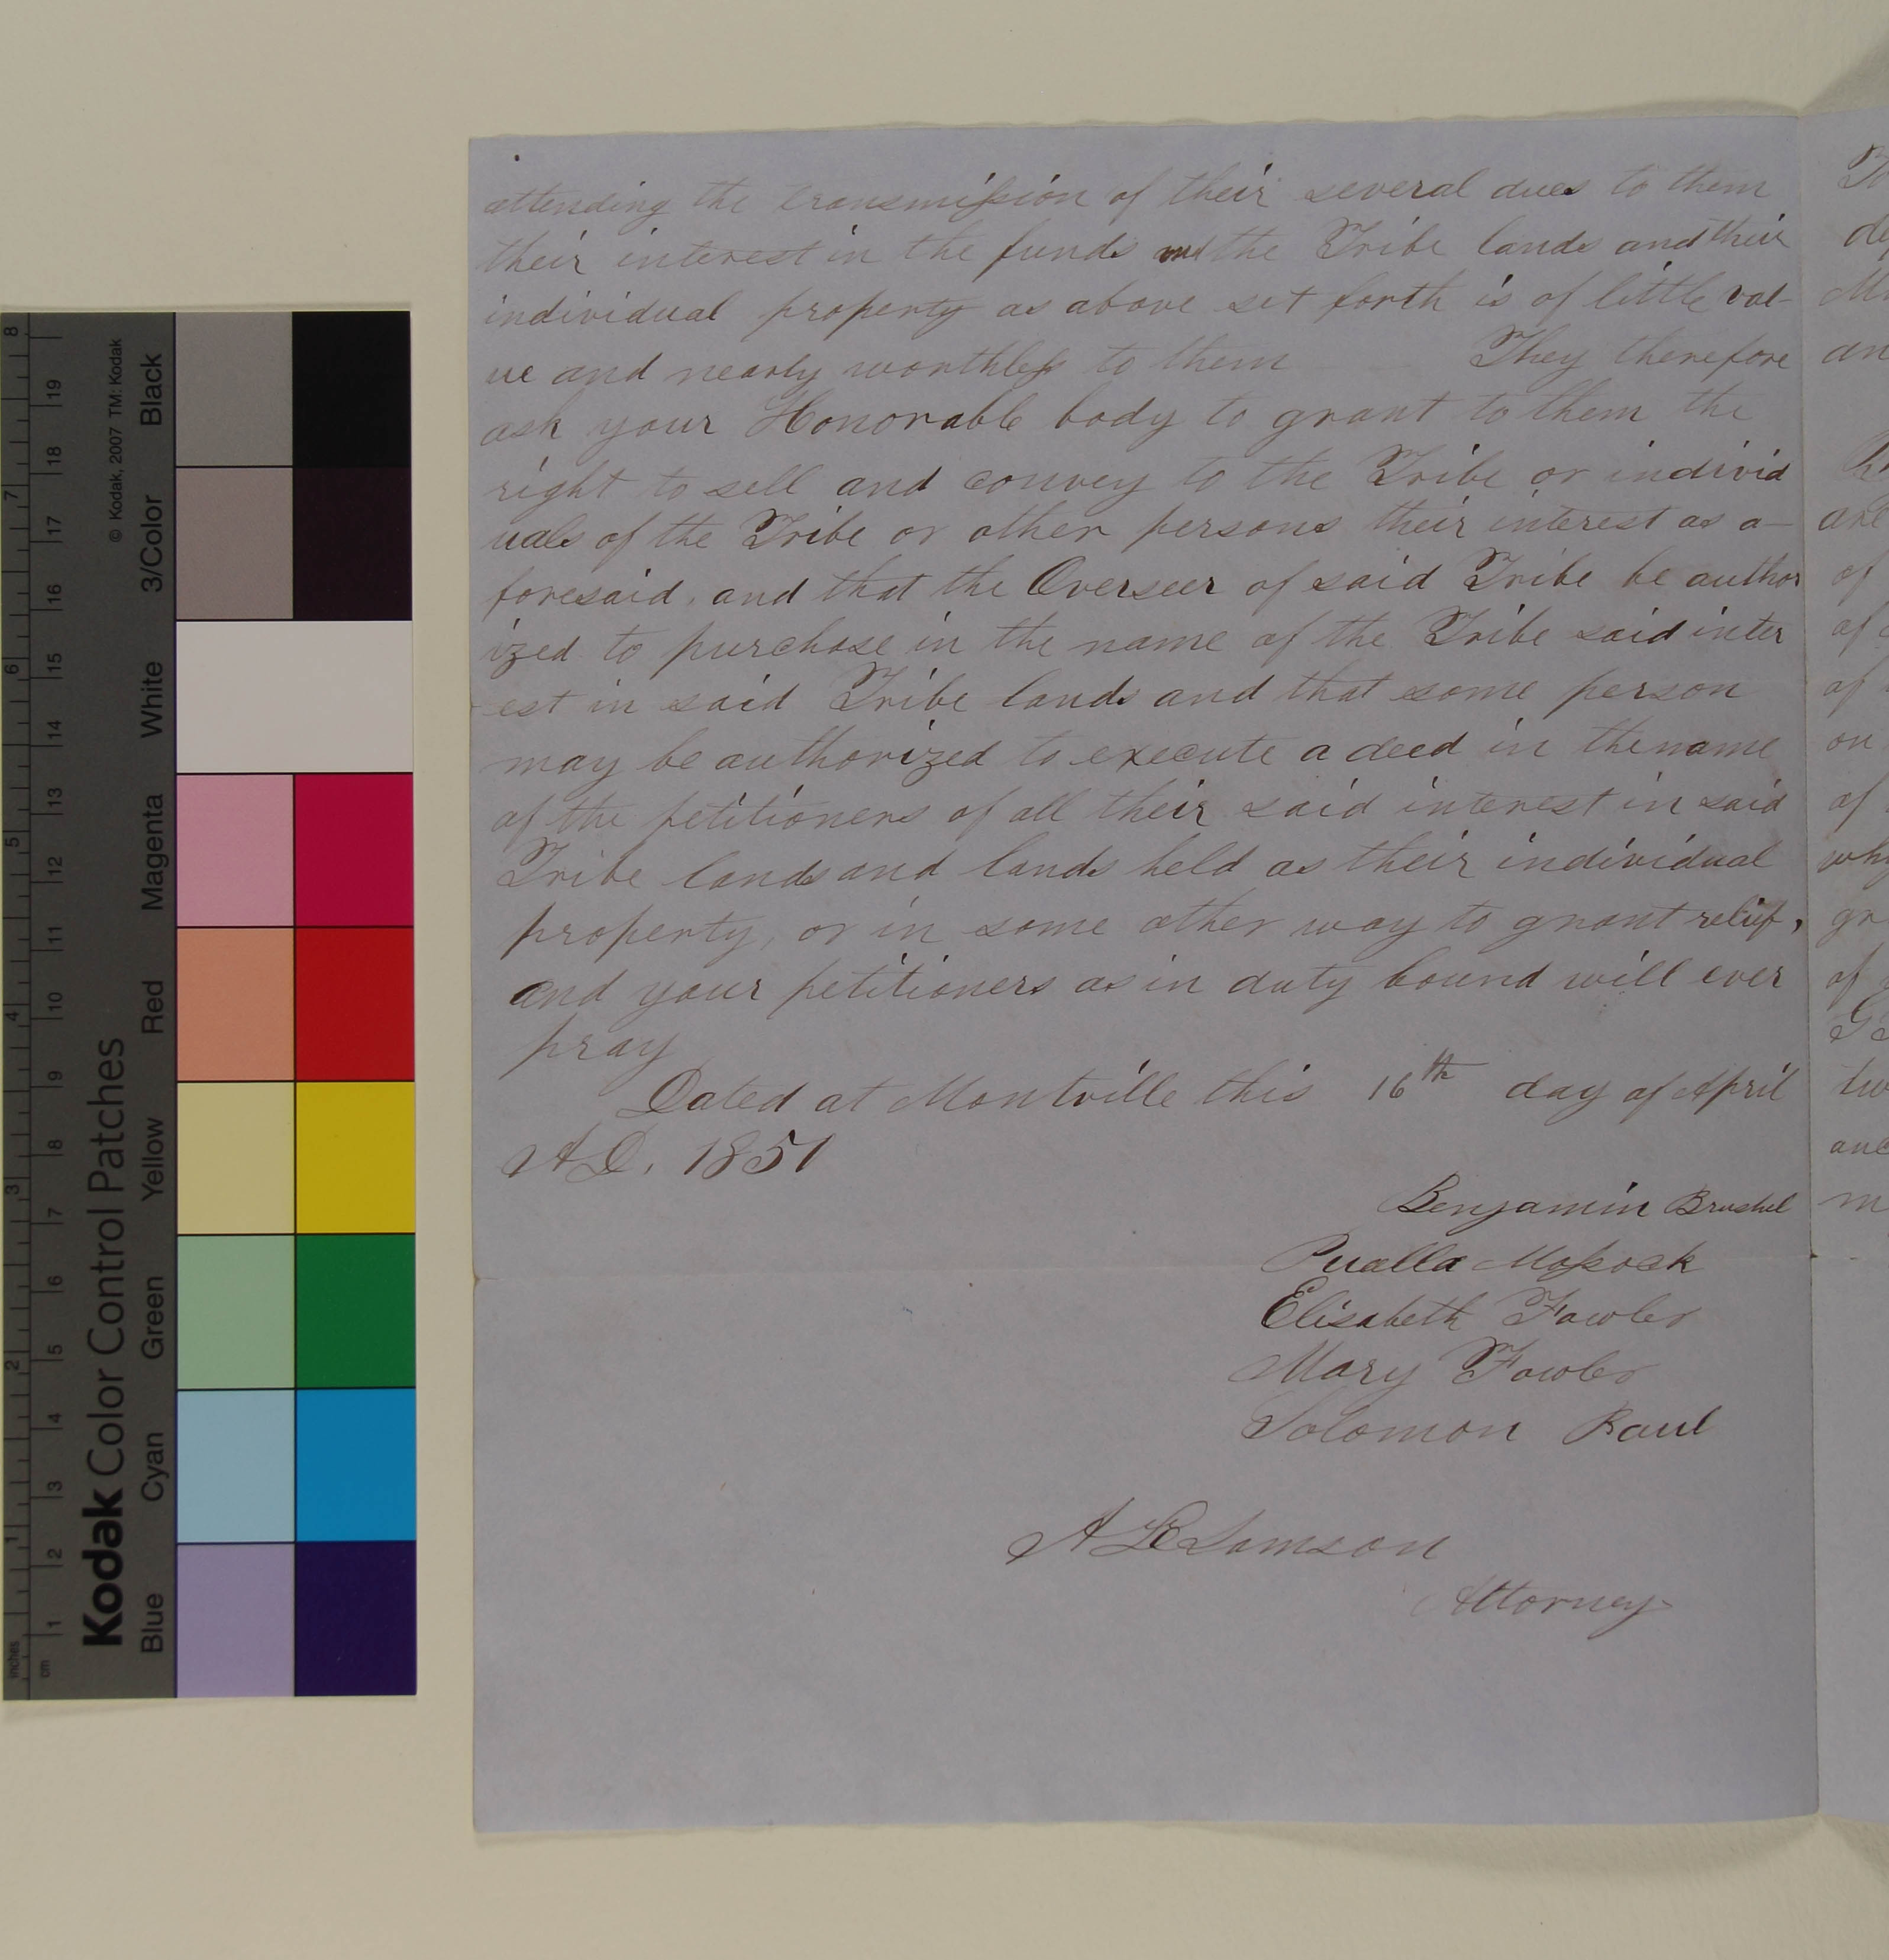 attending the transmission of their several dues to them
their interest in the funds and the Tribe lands and their
individual property as above set forth is of little val-
ue and nearly worthless to them They therefore
ask your Honorable body to grant to them the
right to sell and convey to the Tribe or individ
uals of the Tribe or other persons their interest as a-
foresaid, and that the Overseer of said Tribe be author
ized to purchase in the name of the Tribe said inter
est in said Tribe lands and that some person
may be authorized to execute a deed in the name
of the petitioners of all their said interest in said
Tribe lands and lands held as their individual
property, or in some other way to grant relief,
and your petitioners as in duty bound will ever
pray
Dated at Montville this 16th day of April
A.D. 1851
Benjamin Brushel
Pualla Mossock
Elisabeth Fowler
Mary Fowler
Solomon Paul
A Lamson
Attorney
Kodak Color Control Patches
© Kodak, 2007 TM: Kodak
Blue Cyan Green Yellow Red Magenta White 3/Color Black
inches 1 2 3 4 5 6 7 8
cm 1 2 3 4 5 6 7 8 9 10 11 12 13 14 15 16 17 18 19